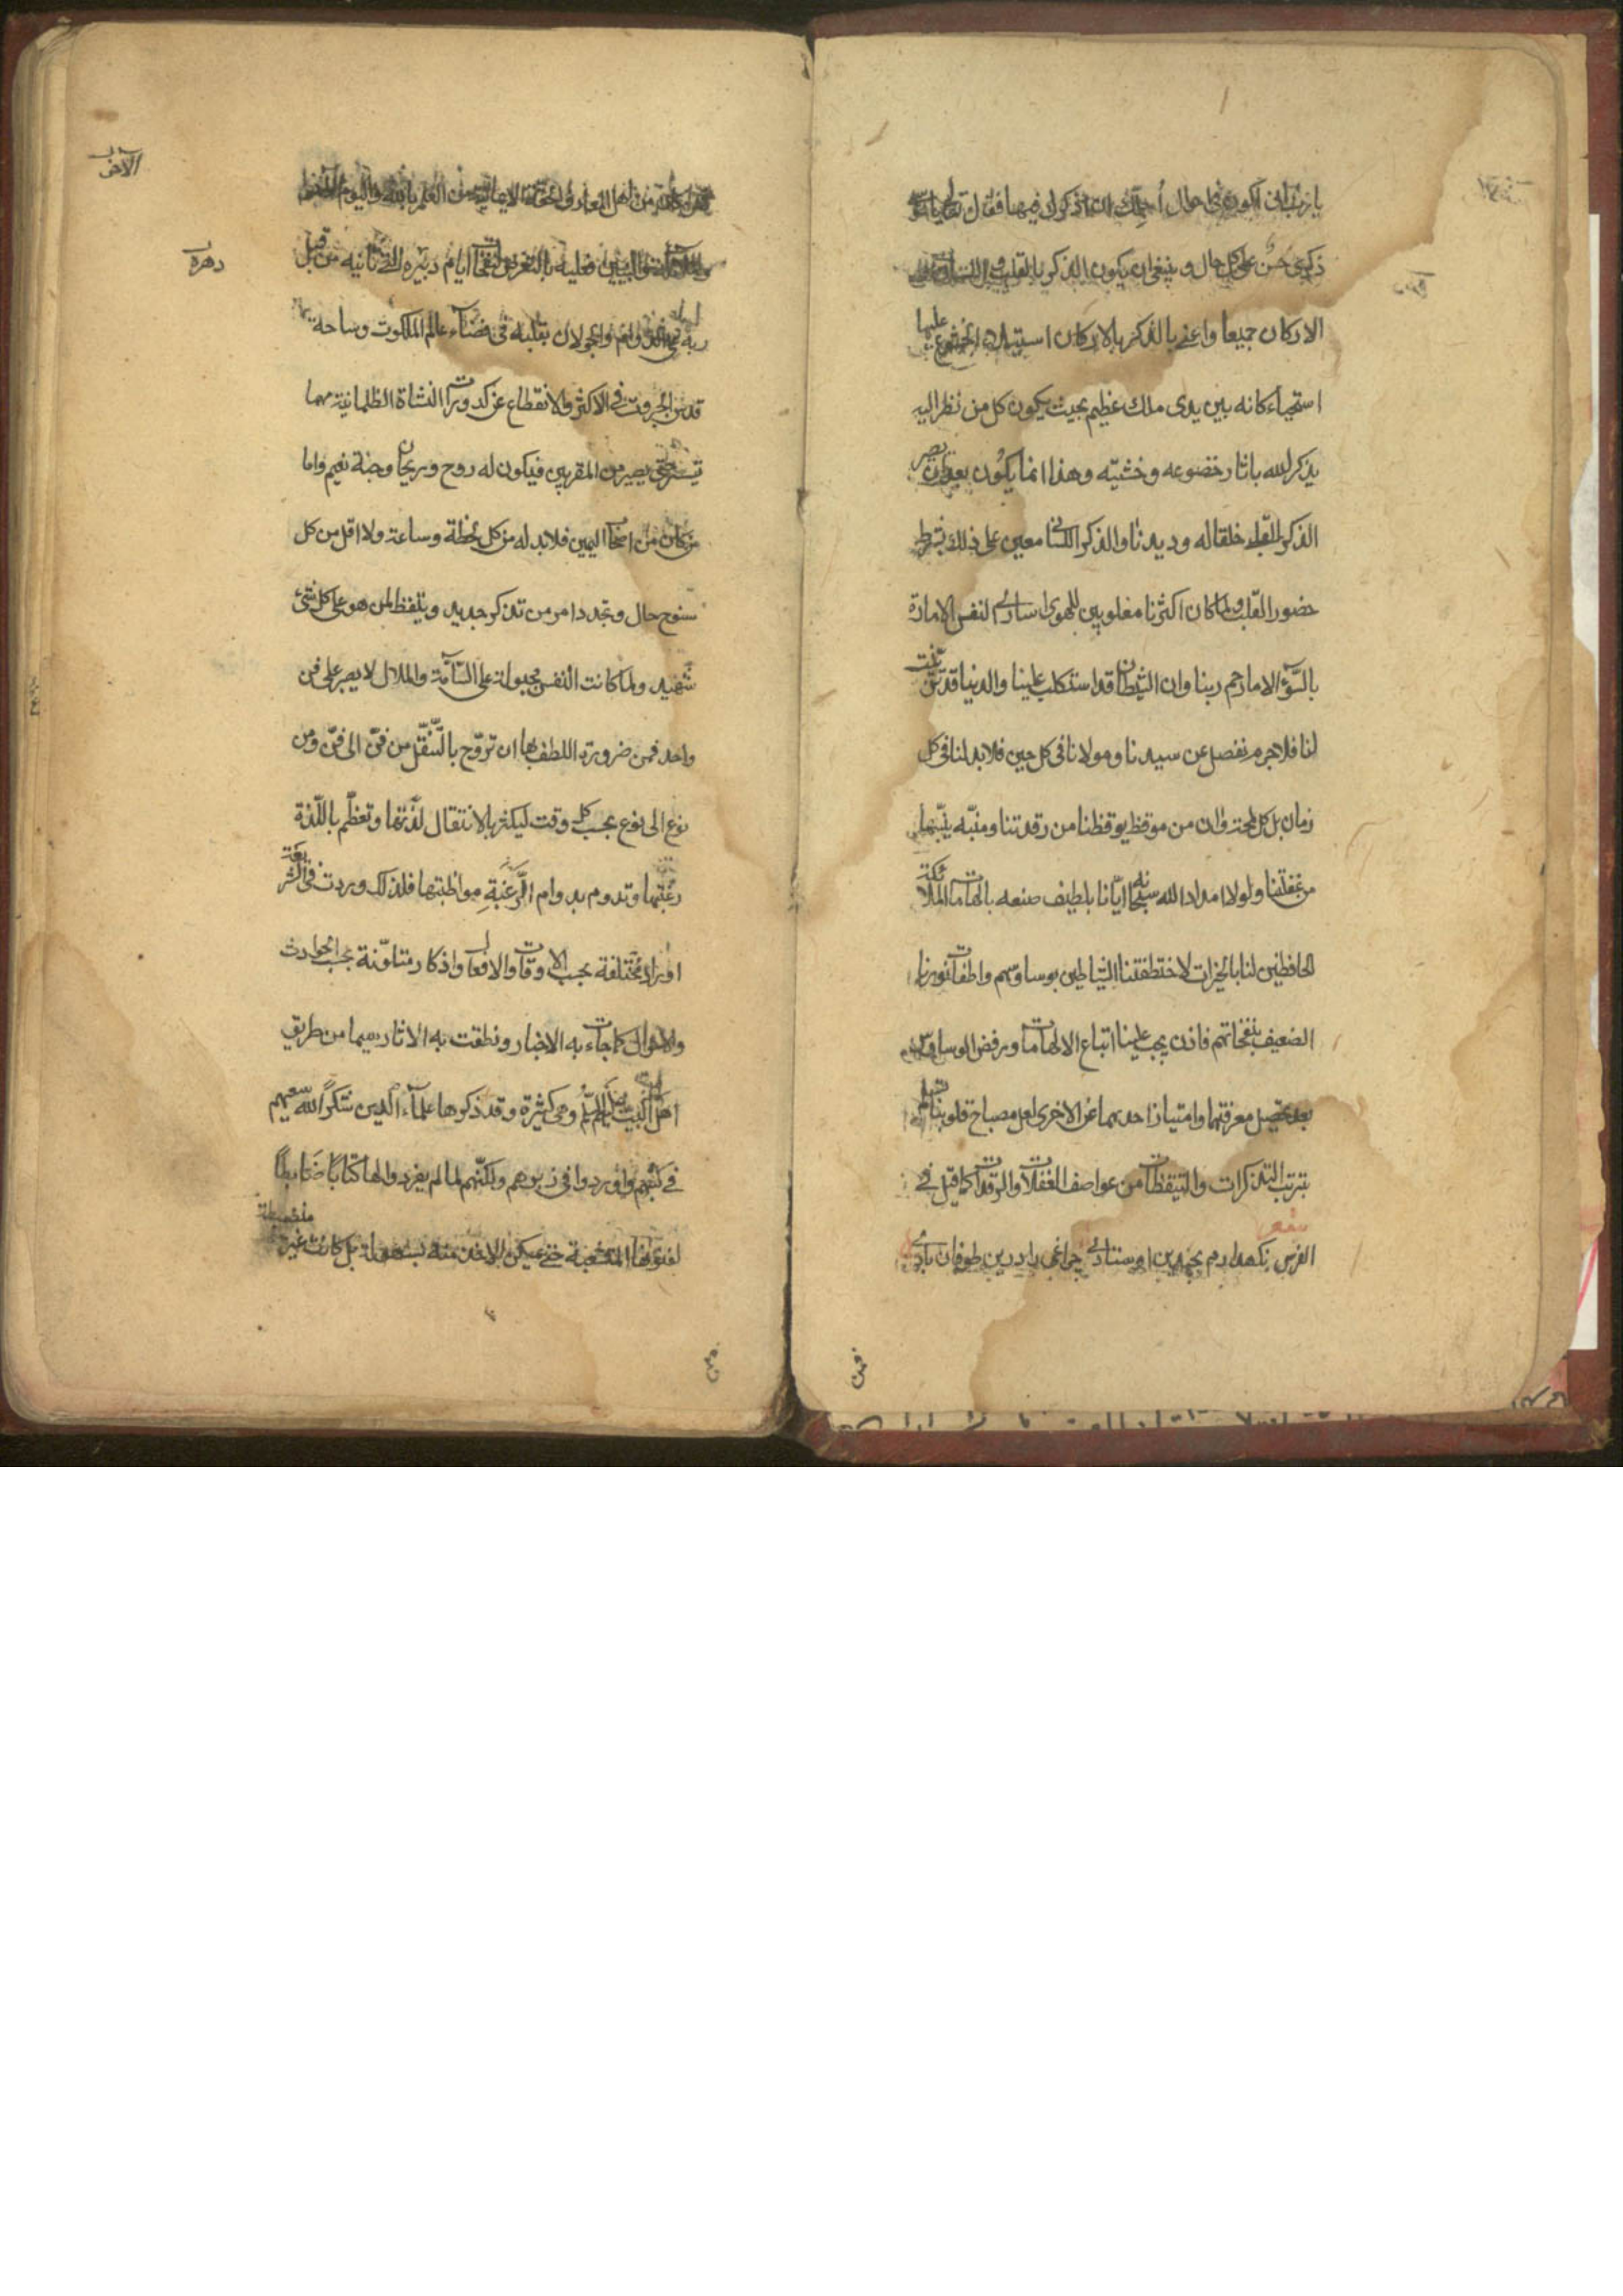 يا رب انى اكون فى حال أجلك ان اذكرك فيها فقال تعالى يا موسى
ذكرى حسن على كل حال و ينبغى ان يكون الذكر بالقلب و اللسان و
الاركان جميعا واعنى بالذكر بالاركان استيلاء الخشوع عليها
استحياء كانه بين يدى ملك عظيم بحيث يكون كل من نظر اليه
يذكر الله باثار خضوعه وخشيته وهذا انما يكون بعد ان يصير
الذكر القلبى خلقا له وديدنا والذكر اللسانى معين على ذلك بشرط
حضور القلب ولما كان اكثرنا مغلوبين للهوى اسارى لنفس الامارة
بالسّوء الا ما رحم ربنا وان الشيطان قد استكلب علينا والدنيا قد تزينت
لنا فلا جرم نفصل عن سيدنا ومولانا فى كل حين فلابد لنا فى كل
زمان بل كل لمحة وان من موقظ يوقظنا من رقدتنا ومنبّه ينبّهنا
من غفلتنا ولولا امداد الله سبحانه ايّانا بلطيف صنعه بالهامات الملائكة
الحافظين لنا بالخيرات لاختطفتنا الشياطين بوساوسهم واطفأت نورنا
الضعيف بنفخاتهم فاذن يجب علينا اتباع الالهامات ورفض الوساوس
بعد تحصيل معرفتهما وامتياز احديهما عن الاخرى لعل مصباح قلوبنا تسلم
بترتب التذكرات والتيقظات من عواصف الغفلات والرقدات كما قيل فى
شعر
الفرس نگهدارم بچندين اوستادى چراغى را درين طوفان بادى
من اهل المعارف الحقة الايمانية من العلم بالله واليوم الآخر
فعليه بالتعرض لنفحات ايام دهره التى تاتيه من قبل
ربه وانعم والجولان بقلبه فى فضاء عالم الملكوت وساحة
قدس الجبروت فى الاكثر والانقطاع عن كدورات النشاة الظلمانية مهما
تيسر حتى يصير من المقربين فيكون له روح وريحان وجنة نعيم واما
من كان من اصحاب اليمين فلابد له من كل لحظة وساعة ولا اقل من كل
سنوح حال وتجدد امر من تذكر جديد وتلفظ لمن هو على كل شئ
شهيد ولما كانت النفس مجبولة على السّآمة والملال لا يصبر على فن
واحد فمن ضرورة اللطف بها ان تروّح بالتّنقّل من فنّ الى فنّ ومن
نوع الى نوع بحسب كل وقت ليكثر بالانتقال لذّتها وتعظّم باللّذة
رغبتها وتدوم بدوام الرَّغبَةِ مواظبتها فلذلك وردت فى الشريعة
اوراد مختلفة بحسب الاوقات والافعال واذكار متلوّنة بحسب الحوادث
والاحوال كما جاءت به الاخبار ونطقت به الاثار سيما من طريق
اهل البيت عليهم السّلم وهى كثيرة وقد ذكروها علمآء الدين شكر الله سعيهم
فى كتبهم واوردوا فى زبرهم ولكنّهم لما لم يفردوا لها كتابًا ضَابطًا
لفنونها المتشعبة حتى يمكن الاخذ منه بسهولة بل كانت غير منضبطة
الآخر
دهره